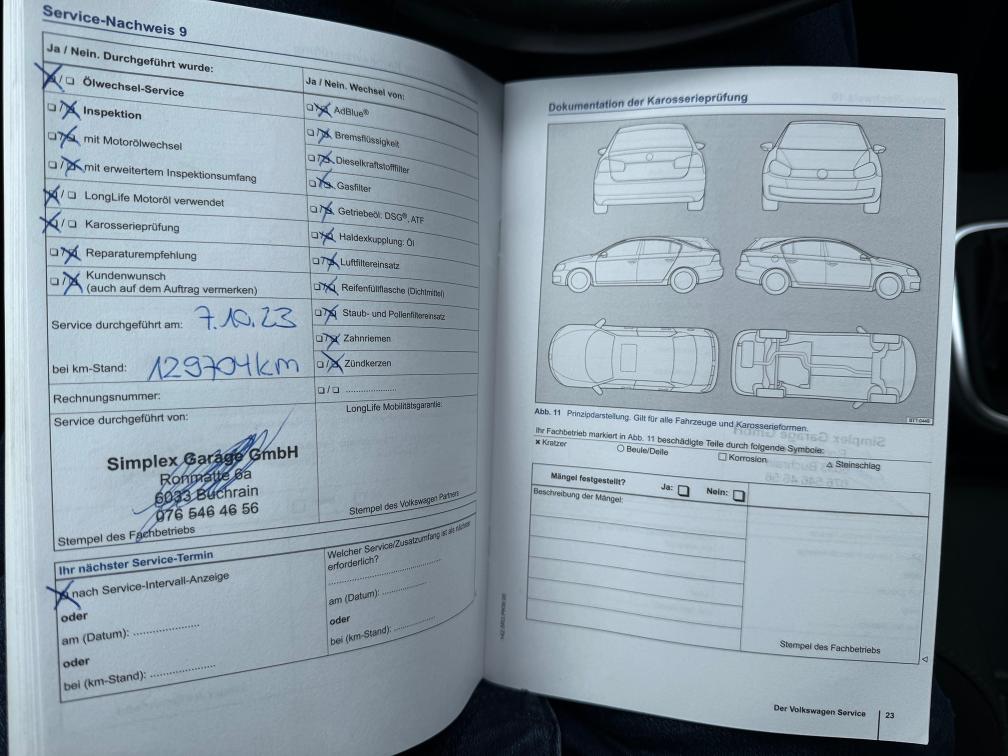 Service-Nachweis 9
Ja / Nein. Durchgeführt wurde:
☒/☐ Ölwechsel-Service
☐/☒ Inspektion
☐/☒ mit Motorölwechsel
☐/☒ mit erweitertem Inspektionsumfang
☒/☐ LongLife Motoröl verwendet
☒/☐ Karosserieprüfung
☐/☒ Reparaturempfehlung
☐/☒ Kundenwunsch
(auch auf dem Auftrag vermerken)
Service durchgeführt am: 7.10.23
bei km-Stand: 129704km
Rechnungsnummer:
Service durchgeführt von:
Simplex Garage GmbH
Ronmatte 6a
6033 Buchrain
076 546 46 56
Stempel des Fachbetriebs
Ja / Nein. Wechsel von:
☐/☒ AdBlue®
☐/☒ Bremsflüssigkeit
☐/☒ Dieselkraftstofffilter
☐/☒ Gasfilter
☐/☒ Getriebeöl: DSG®, ATF
☐/☒ Haldexkupplung: Öl
☐/☒ Luftfiltereinsatz
☐/☒ Reifenfüllflasche (Dichtmittel)
☐/☒ Staub- und Pollenfiltereinsatz
☐/☒ Zahnriemen
☐/☒ Zündkerzen
☐/☐ ....................
LongLife Mobilitätsgarantie:
Stempel des Volkswagen Partners
Ihr nächster Service-Termin
☒ nach Service-Intervall-Anzeige
oder
am (Datum): ....................
oder
bei (km-Stand): ....................
Welcher Service/Zusatzumfang ist als nächster
erforderlich?
..............................
am (Datum): ....................
oder
bei (km-Stand): ....................
Dokumentation der Karosserieprüfung
Abb. 11 Prinzipdarstellung. Gilt für alle Fahrzeuge und Karosserieformen.
Ihr Fachbetrieb markiert in Abb. 11 beschädigte Teile durch folgende Symbole:
× Kratzer ○ Beule/Delle ☐ Korrosion △ Steinschlag
Mängel festgestellt? Ja: ☐ Nein: ☐
Beschreibung der Mängel:
Stempel des Fachbetriebs
Der Volkswagen Service 23